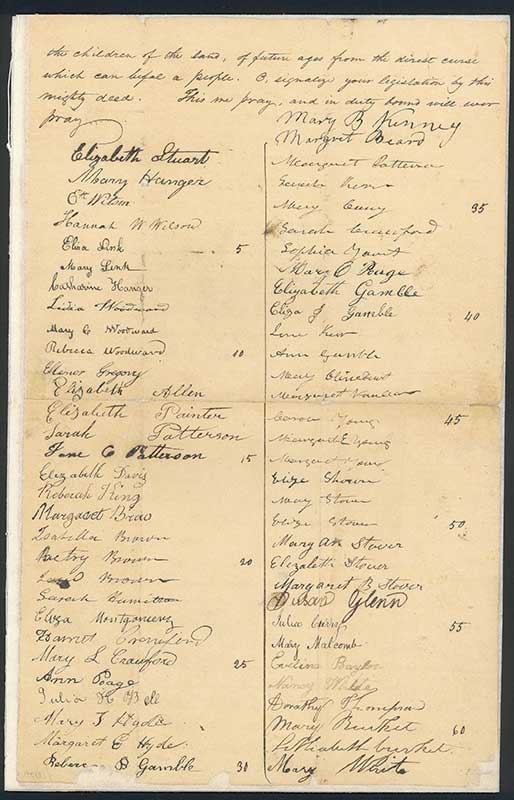 the children of the land, of future ages from the direst curse
which can befal a people. O, signalize your legislation by this
mighty deed. This we pray, and in duty bound will ever
pray
Elizabeth Stuart
Mary Hanger
E Wilson
Hannah W Wilson
Eliza Link 5
Mary Link
Catharine Hanger
Lidia Woodward
Mary C Woodward
Rebecca Woodward 10
Ellenor Gregory
Elizabeth Allen
Elizabeth Painter
Sarah Patterson
Jane C Patterson 15
Elizabeth Davis
Rebecah King
Margaret
Isabella Brown
Brown 20
Brown
Sarah Hamilton
Eliza Montgomery
Harriot Crawford
Mary L Crawford 25
Ann Poage
Julia H Bell
Mary J Hyde
Margaret E Hyde
Rebecca B Gamble 30
Mary B Kinney
Margret Beard
Margaret Patterson
Kerr
Mary Curry 35
Sarah Crawford
Sophia
Mary C Ruge
Elizabeth Gamble
Eliza J Gamble 40
Jane Kerr
Ann Gamble
Mary
Margaret
Young 45
Margaret E Young
Margaret Young
Eliza
Mary Stover
Eliza Stover 50
Mary An Stover
Elizabeth Stover
Margaret B Stover
Susan Glenn
Julia 55
Mary Malcomb
Evelina Baylor
Nancy
Dorothy Thompson
Mary Burket 60
burket
Mary White